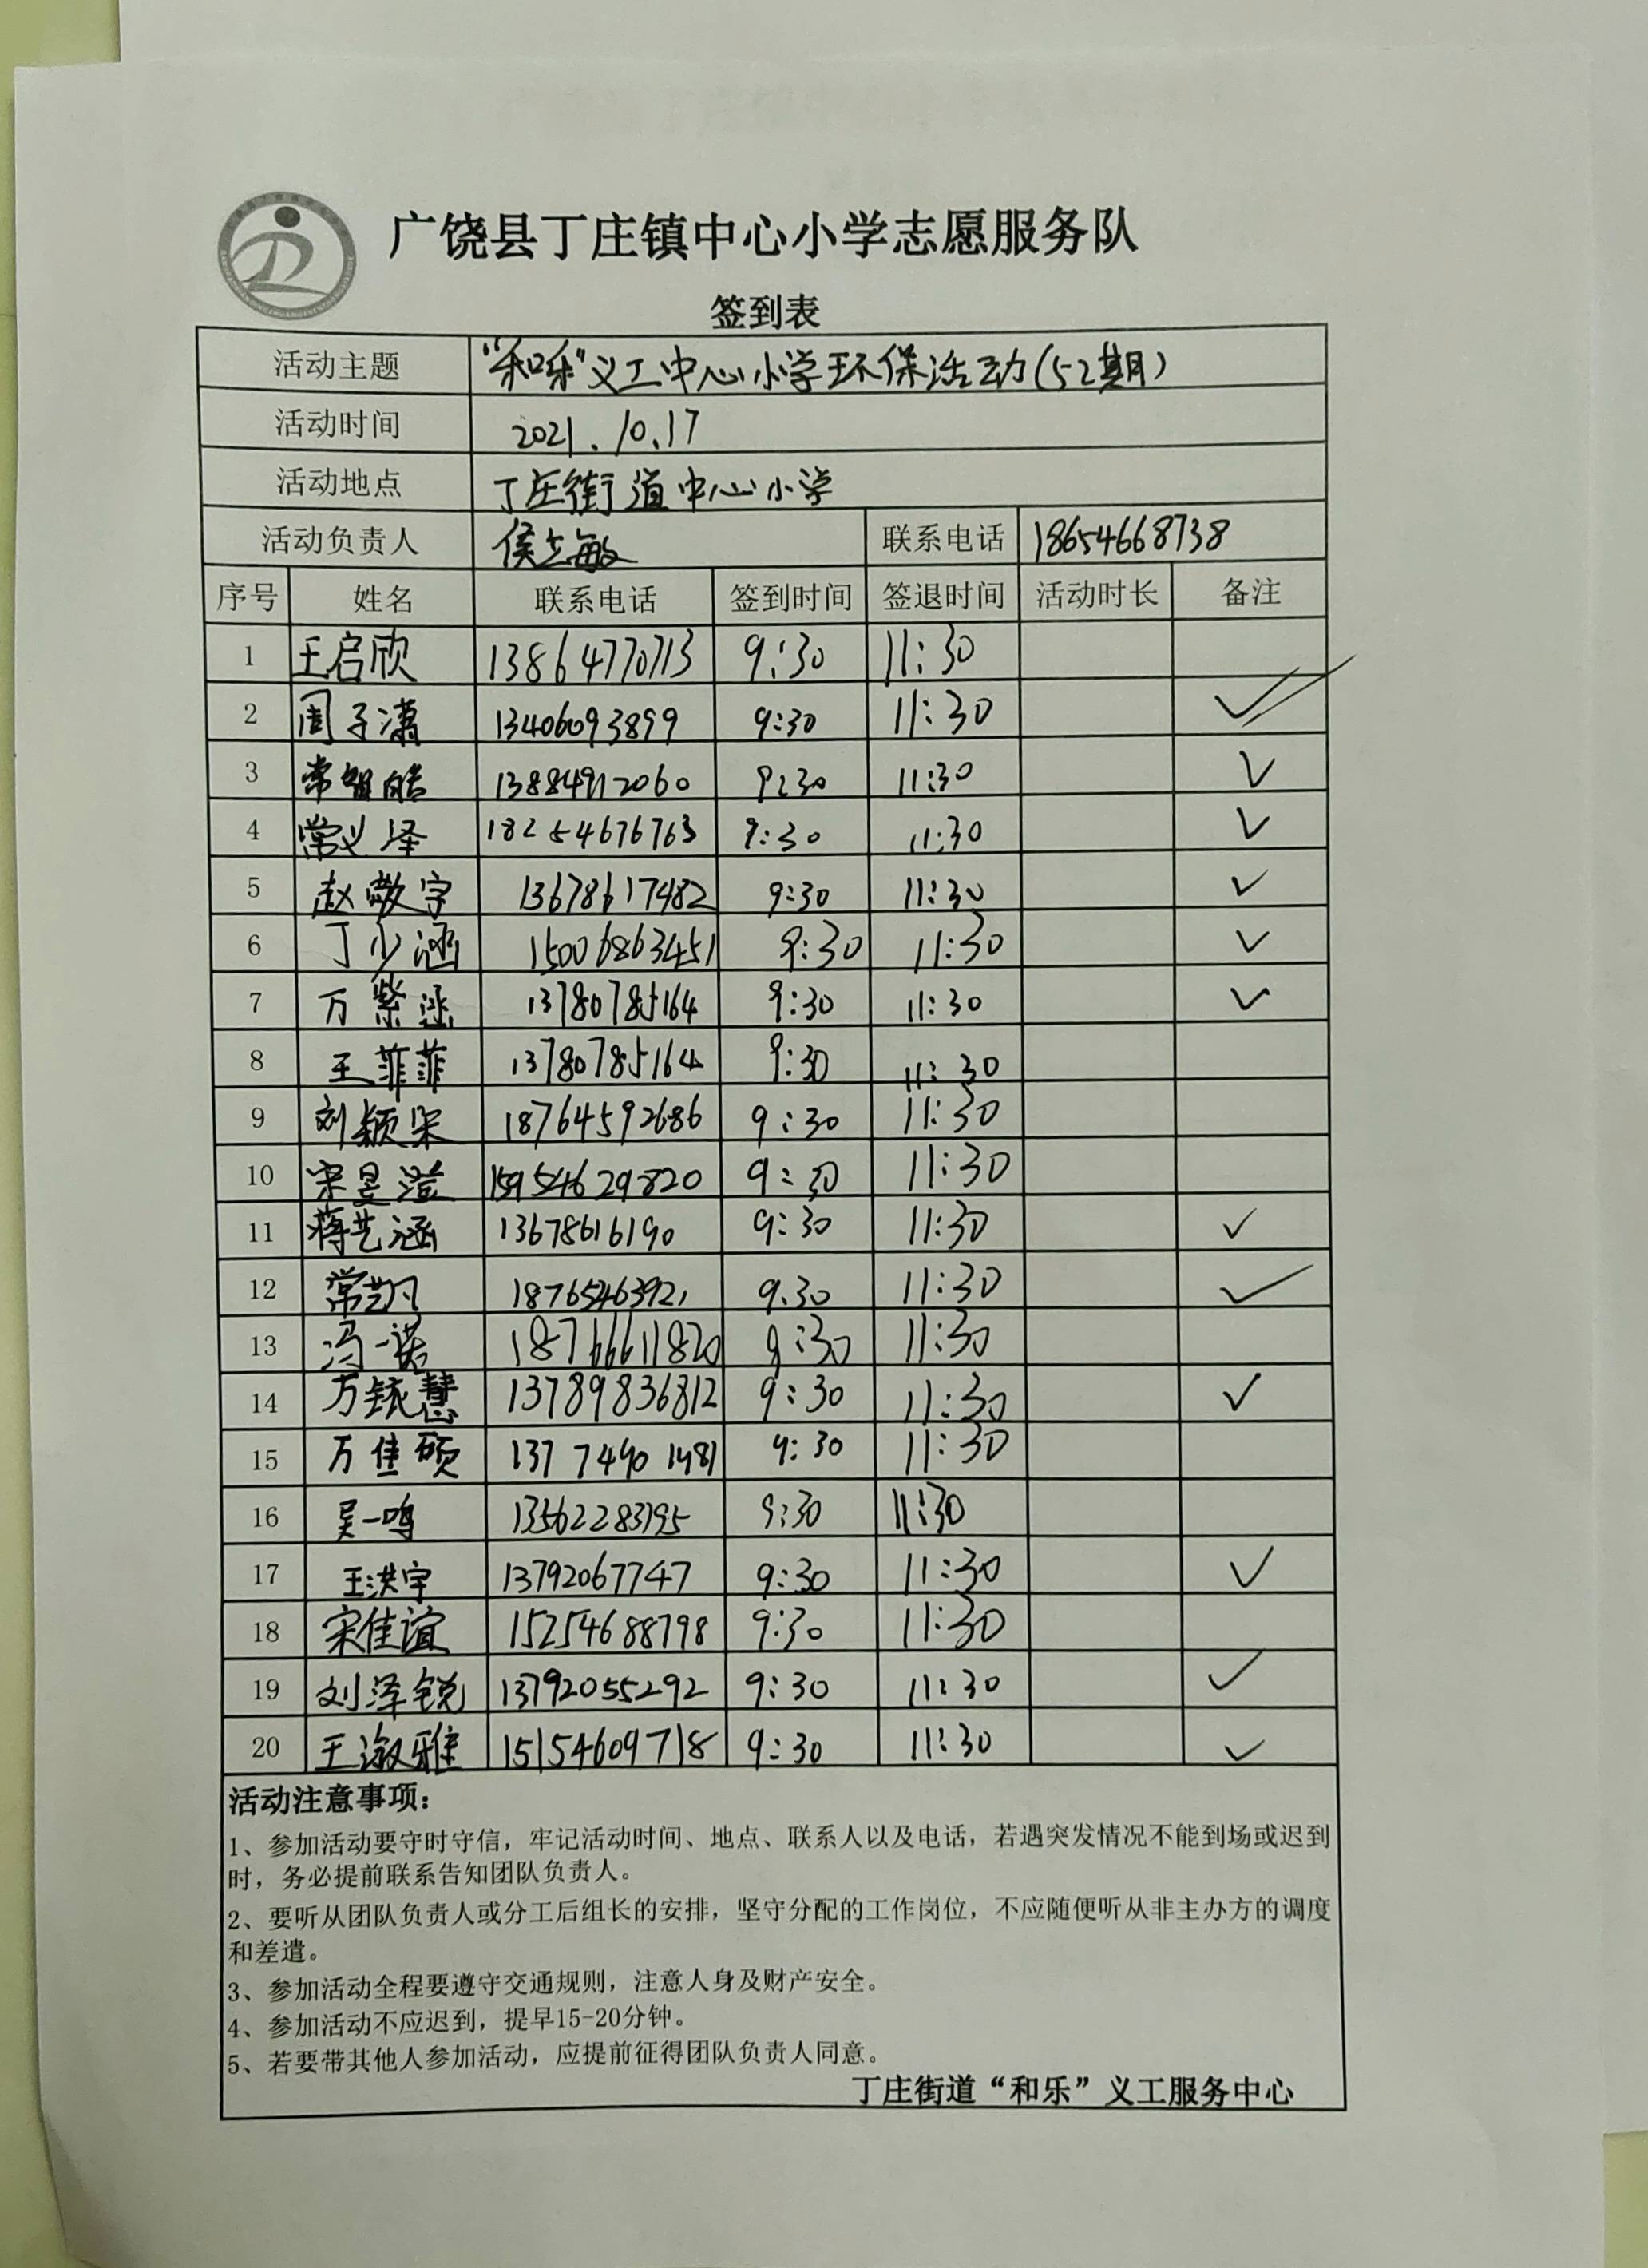 广饶县丁庄镇中心小学志愿服务队
签到表
活动主题 "和乐"义工中心小学环保活动(52期)
活动时间 2021.10.17
活动地点 丁庄街道中心小学
活动负责人 侯立敏 联系电话 18654668738
序号 姓名 联系电话 签到时间 签退时间 活动时长 备注
1 王启欣 13864770713 9:30 11:30
2 周子潇 13406093899 9:30 11:30 ✓
3 常智皓 13884912060 9:30 11:30 ✓
4 常义泽 18254676763 9:30 11:30 ✓
5 赵敬宇 13678617482 9:30 11:30 ✓
6 丁少涵 15006863451 9:30 11:30 ✓
7 万紫涵 13780785164 9:30 11:30 ✓
8 王菲菲 13780785164 9:30 11:30
9 刘颖 18764592686 9:30 11:30
10 宋昱滢 15954629820 9:30 11:30
11 蒋艺涵 13678616190 9:30 11:30 ✓
12 常凯 18765463921 9:30 11:30 ✓
13 冯一诺 18766611820 9:30 11:30
14 万铱慧 13789836812 9:30 11:30 ✓
15 万佳硕 9:30 11:30
16 吴一鸣 13562283195 9:30 11:30
17 王洪宇 13792067747 9:30 11:30 ✓
18 宋佳谊 15254688798 9:30 11:30
19 刘泽锐 13792055292 9:30 11:30 ✓
20 王淑雅 15154609718 9:30 11:30 ✓
活动注意事项：
1、参加活动要守时守信，牢记活动时间、地点、联系人以及电话，若遇突发情况不能到场或迟到
时，务必提前联系告知团队负责人。
2、要听从团队负责人或分工后组长的安排，坚守分配的工作岗位，不应随便听从非主办方的调度
和差遣。
3、参加活动全程要遵守交通规则，注意人身及财产安全。
4、参加活动不应迟到，提早15-20分钟。
5、若要带其他人参加活动，应提前征得团队负责人同意。
丁庄街道“和乐”义工服务中心